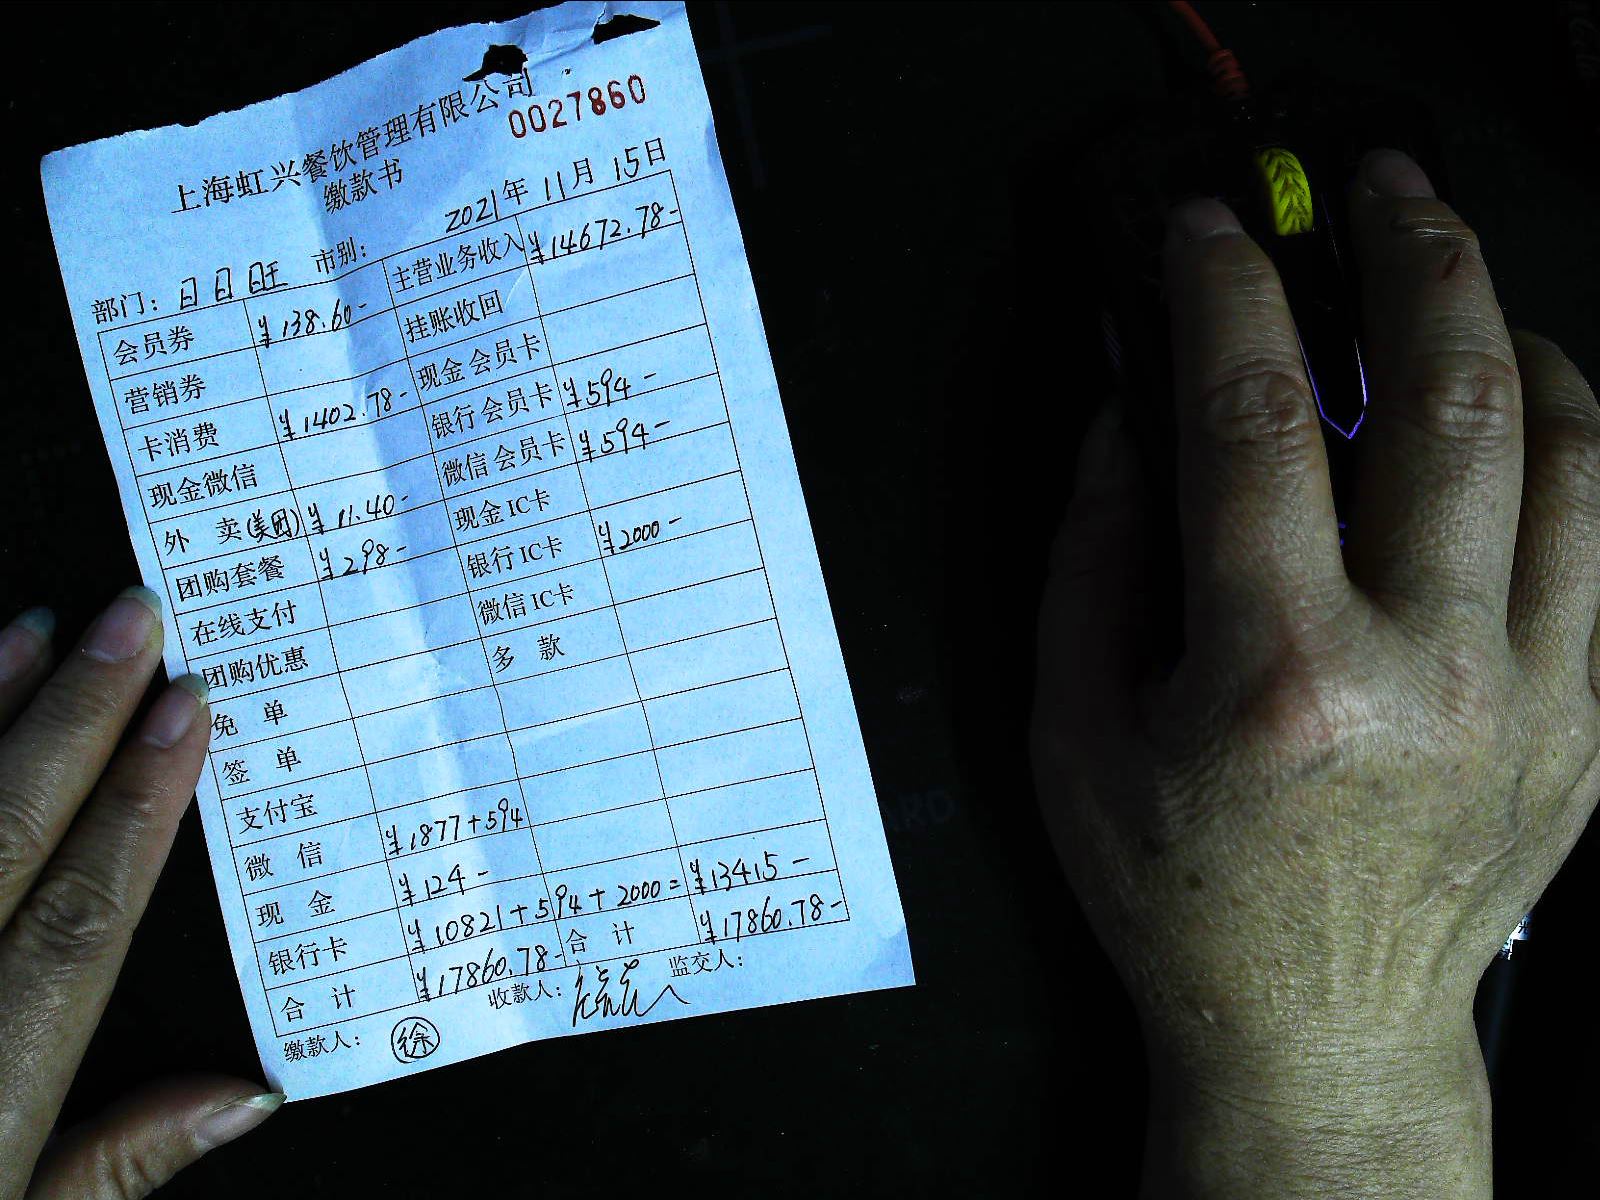 上海虹兴餐饮管理有限公司
0027860
缴款书
2021年 11月 15日
部门: 日日旺 市别:
会员券 ¥138.60- 主营业务收入 ¥14672.78-
营销券 挂账收回
卡消费 ¥1402.78- 现金会员卡
现金微信 银行会员卡 ¥594-
外 卖(美团) ¥11.40- 微信会员卡 ¥594-
团购套餐 ¥298- 现金IC卡
在线支付 银行IC卡 ¥2000-
团购优惠 微信IC卡
免 单 多 款
签 单
支付宝
微 信 ¥1877+594
现 金 ¥124-
银行卡 ¥10821+594+2000= ¥13415-
合 计 ¥17860.78- 合 计 ¥17860.78-
缴款人: 徐 收款人: 监交人: